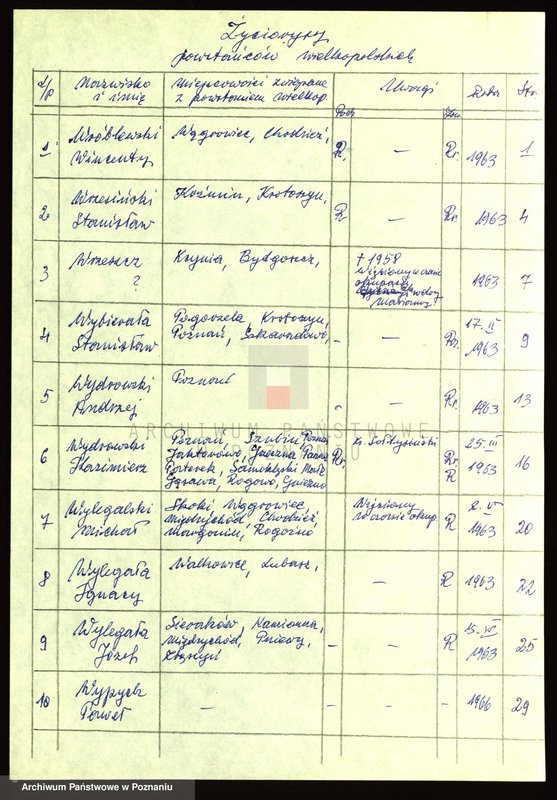 Życiorysy
powstańców wielkopolskich
L/p Nazwisko i imię Miejscowości związane z powstaniem wielkop. Uwagi Data Str.
1 Wróblewski Wincenty Wągrowiec, Chodzież, R. — Rr. 1963 1
2 Wrzesiński Stanisław Koźmin, Krotoszyn, R — Rr. 1963 4
3 Wrzeszcz ? Kcynia, Bydgoszcz, + 1958 1963 7
4 Wybierała Stanisław Pogorzela, Krotoszyn, Poznań, - — 17. II 1963 9
5 Wydrowski Andrzej Poznań - — Rr. 1963 13
6 Wydrowski Kazimierz Poznań, Szubin, Gąsawa, Rogowo, Gniezno Rr. 25. III 1963 16
7 Wylegalski Michał Skoki, Wągrowiec, Międzychód, Chodzież, Margonin, Rogoźno R 2. VI 1963 20
8 Wylegała Ignacy Walkowice, Lubasz, — R 1963 22
9 Wylegała Józef Sieraków, Kamionna, Międzychód, Pniewy, Zbąszyń - — R 15. IV 1963 25
10 Wypych Paweł — - — - 1966 29
ARCHIWUM PAŃSTWOWE
W POZNANIU
Archiwum Państwowe w Poznaniu